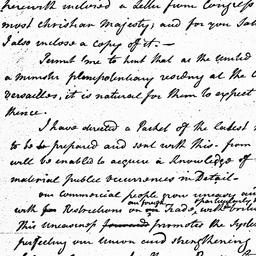 herewith inclosed a Letter from Congress
most Christian Majesty; and for you
I also inclose a copy of it.—
Permit me to hint that as the United
a minister plenipotentiary residing at the
Versailles, it is natural for them to expect
thence.
I have directed a Packet of the latest
to be prepared and sent with this. from
will be enabled to acquire a Knowledge of
material public occurrences in Detail—
our commercial people grow uneasy
with Restrictions on our foreign Trade, particularly
with
This uneasiness promotes the
perfecting our Union and strengthening